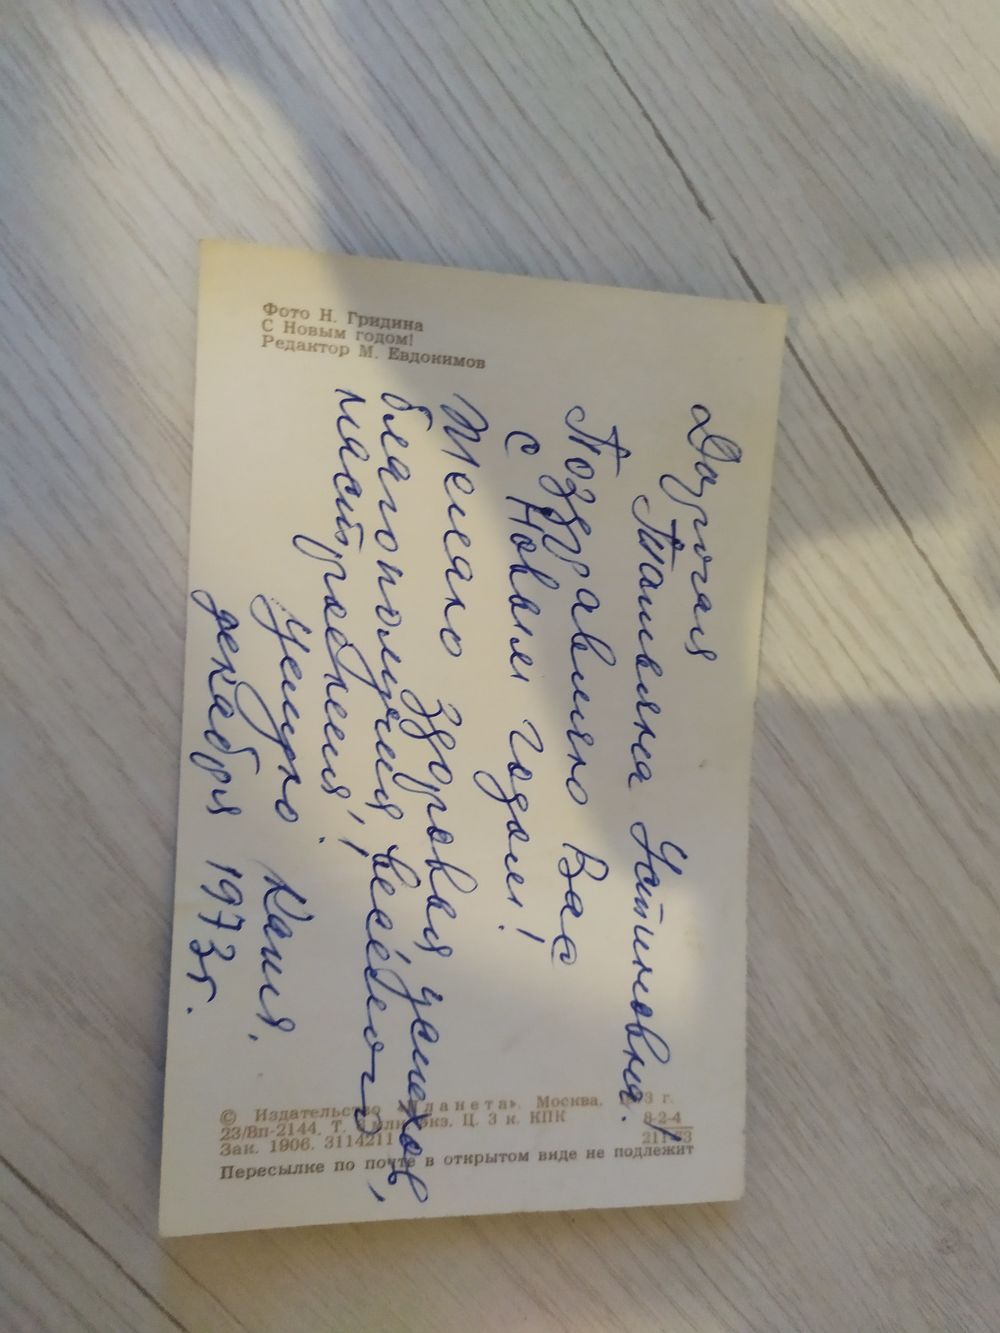 Фото Н. Гридина
С Новым годом!
Редактор М. Евдокимов
Дорогая
Татьяна Устиновна.
Поздравляю Вас
с Новым годом!
Желаю здоровья, успехов,
благополучия, весёлого
настроения!
Целую. Катя.
декабря 1973г.
© Издательство «Планета». Москва. 1973 г.
23/Вп-2144. Т. млн. экз. Ц. 3 к. КПК
8-2-4
Зак. 1906. 3114211
211-73
Пересылке по почте в открытом виде не подлежит